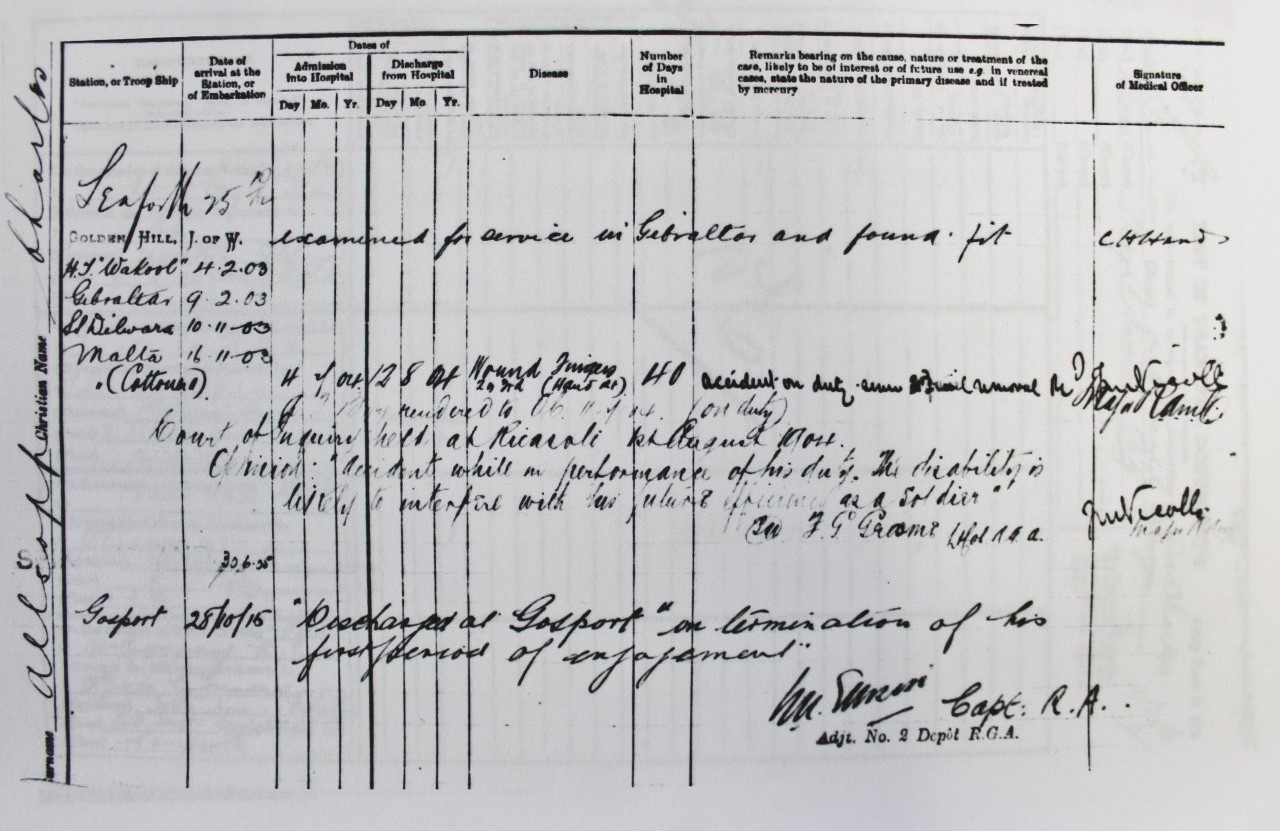 Surname Allsopp Christian Name Charles
Dates of
Station, or Troop Ship
Date of arrival at the Station, or of Embarkation
Admission into Hospital
Discharge from Hospital
Day Mo. Yr. Day Mo. Yr.
Disease
Number of Days in Hospital
Remarks bearing on the cause, nature or treatment of the
case, likely to be of interest or of future use e.g. in venereal
cases, state the nature of the primary disease and if treated
by mercury
Signature of Medical Officer
Seaforth 25
GOLDEN HILL, I. OF W. examined for service in Gibraltar and found fit
H.T. "Wakool" 4.2.03
Gibraltar 9.2.03
Dilwara 10-11-03
Malta 16-11-03
"(Cottonera) 4 7 04 12 8 04 Wound Fingers 40 accident on duty
rendered to (on duty)
Court of Inquiry held at Ricasoli 1st August 1904.
Opinion. "accident while in performance of his duty. The disability is
likely to interfere with his future efficiency as a soldier"
30.6.05
Gosport 28/10/15 "Discharged at Gosport" on termination of his
first period of engagement"
Capt. R.A.
Adjt. No. 2 Depôt R.G.A.